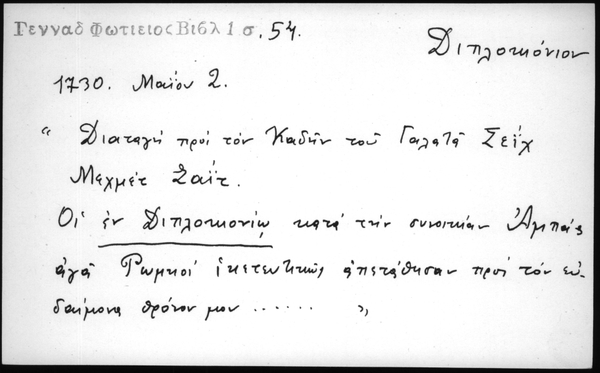 Γενναδ Φωτιειος Βιβλ 1 σ. 54.
Διπλοκιόνιον
1730. Μαΐου 2.
“ Διαταγή πρὸς τὸν Καδῆν τοῦ Γαλατᾶ Σεΐχ
Μεχμὲτ Σαΐτ.
Οἱ ἐν Διπλοκιονίῳ κατὰ τὴν συνοικίαν Ἀμπὰς
ἀγᾶ Ρωμηοὶ ἱκετευτικῶς ἀπετάθησαν πρὸς τὸν εὐ-
δαίμονα θρόνον μου ...... ”